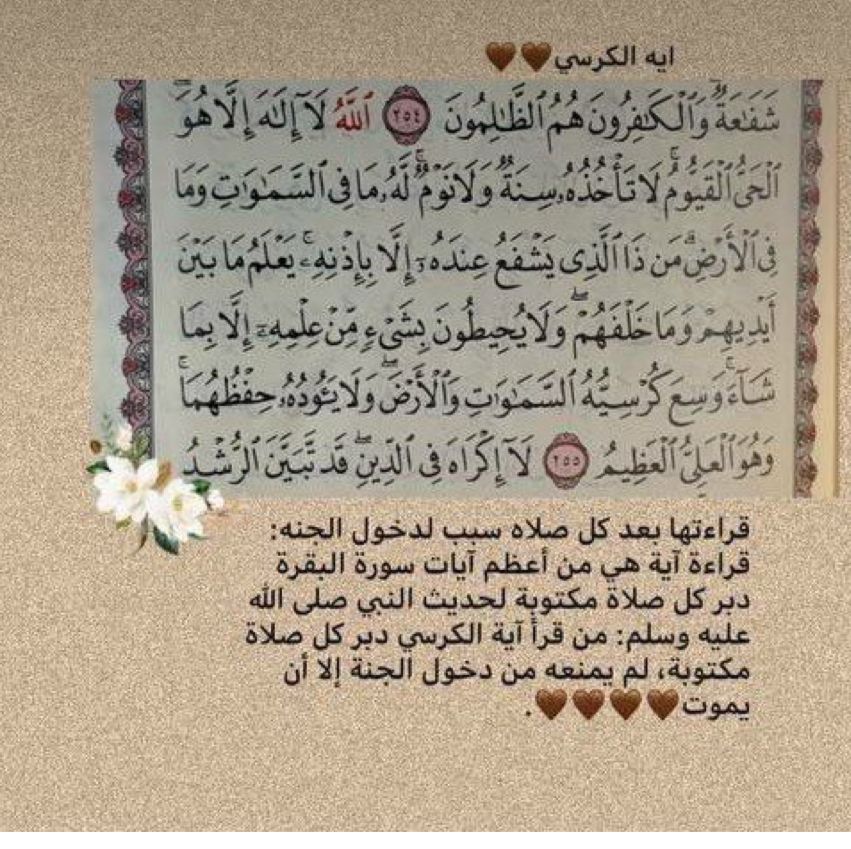 ايه الكرسي🤎🤎
شَفَٰعَةٌ وَٱلْكَٰفِرُونَ هُمُ ٱلظَّٰلِمُونَ ٢٥٤ ٱللَّهُ لَآ إِلَٰهَ إِلَّا هُوَ
ٱلْحَىُّ ٱلْقَيُّومُ ۚ لَا تَأْخُذُهُۥ سِنَةٌ وَلَا نَوْمٌ ۚ لَّهُۥ مَا فِى ٱلسَّمَٰوَٰتِ وَمَا
فِى ٱلْأَرْضِ ۗ مَن ذَا ٱلَّذِى يَشْفَعُ عِندَهُۥٓ إِلَّا بِإِذْنِهِۦ ۚ يَعْلَمُ مَا بَيْنَ
أَيْدِيهِمْ وَمَا خَلْفَهُمْ ۖ وَلَا يُحِيطُونَ بِشَىْءٍ مِّنْ عِلْمِهِۦٓ إِلَّا بِمَا
شَآءَ ۚ وَسِعَ كُرْسِيُّهُ ٱلسَّمَٰوَٰتِ وَٱلْأَرْضَ ۖ وَلَا يَـُٔودُهُۥ حِفْظُهُمَا ۚ
وَهُوَ ٱلْعَلِىُّ ٱلْعَظِيمُ ٢٥٥ لَآ إِكْرَاهَ فِى ٱلدِّينِ ۖ قَد تَّبَيَّنَ ٱلرُّشْدُ
قراءتها بعد كل صلاه سبب لدخول الجنه:
قراءة آية هي من أعظم آيات سورة البقرة
دبر كل صلاة مكتوبة لحديث النبي صلى الله
عليه وسلم: من قرأ آية الكرسي دبر كل صلاة
مكتوبة، لم يمنعه من دخول الجنة إلا أن
يموت🤎🤎🤎🤎.